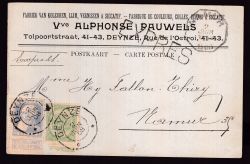 FABRIEK VAN KOLEUREN, LIJM, VERNISSEN & SECATIF. - FABRIQUE DE COULEURS, COLLES, VERNIS & SICCATIF
Vve ALPHONSE PAUWELS
Tolpoortstraat, 41-43, DEYNZE, Rue de l'Octroi, 41-43
EXPRES
POSTKAART — CARTE POSTALE
Namur
DEYNZE
DEYNZE